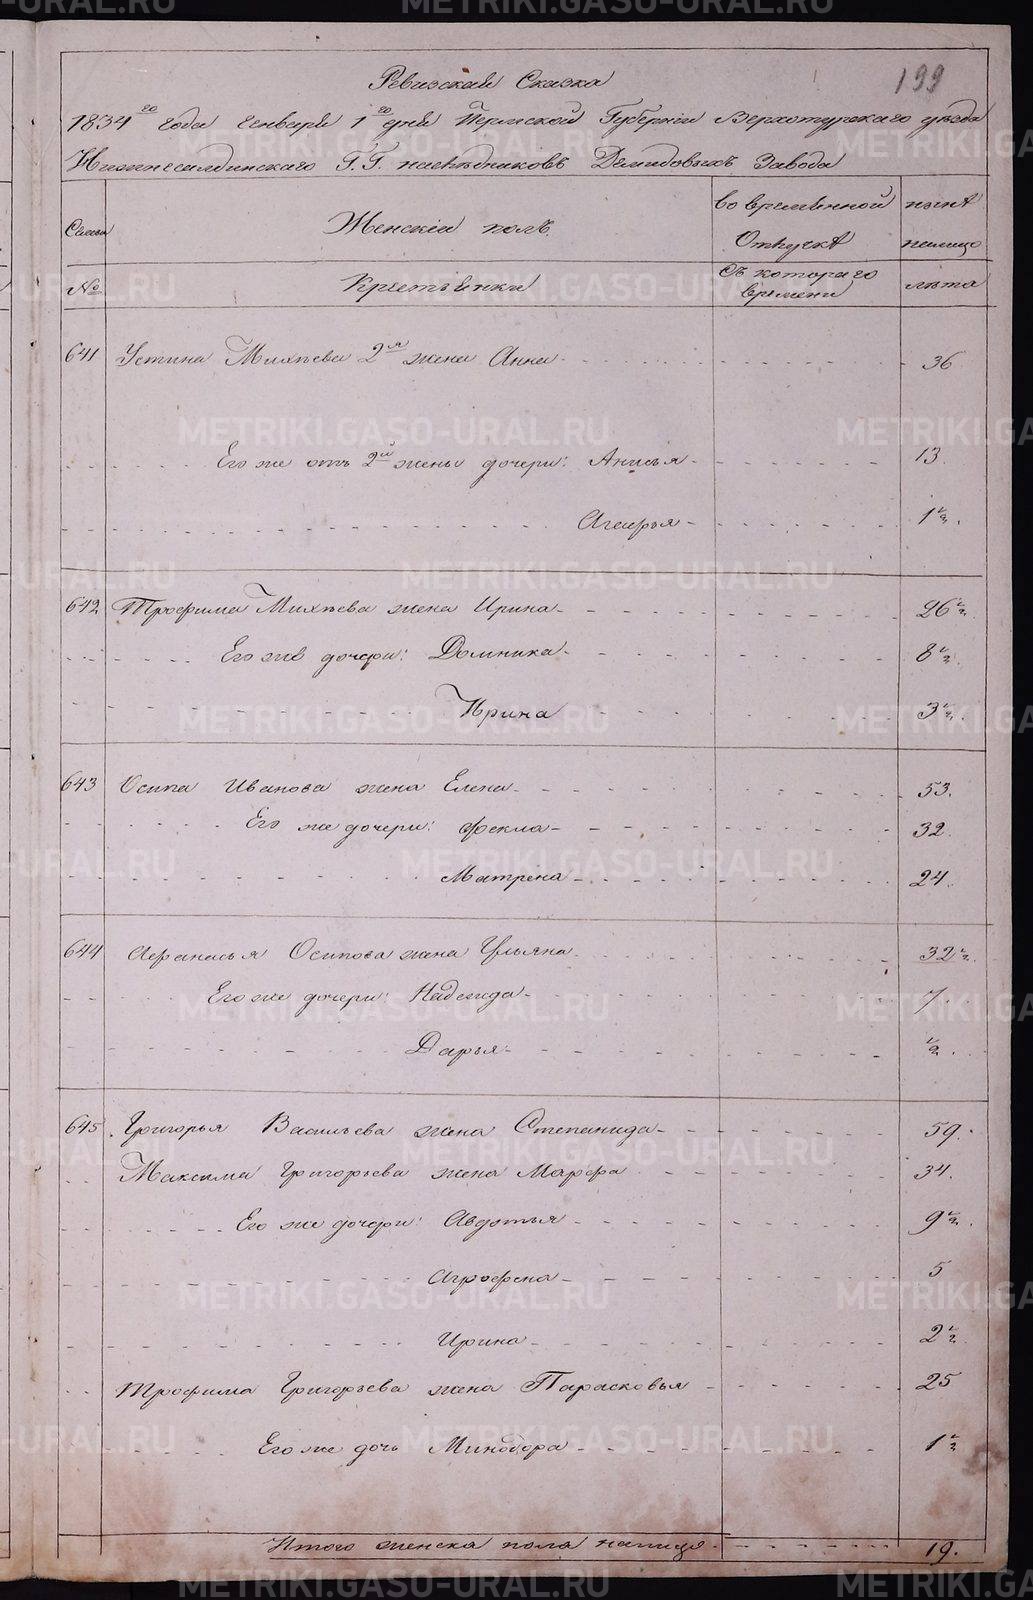 199
Ревизская Сказка
1834го года генваря 1го дня Пермской Губернии Верхотурскаго уезда
Нижнесалдинскаго Г.Г. наследниковъ Демидовыхъ Завода
Семьи Женскій полъ. Во временной Отлучкѣ нынѣ налицо
№ Крестьянки Съ котораго времени лѣта
641 Устина Михѣева 2я жена Анна 36
Его же отъ 2й жены дочери: Анисья 13.
Агафья 1 1/2.
642 Трофима Михѣева жена Ирина 26 1/2
Его же дочери: Домника 8 1/2
Ирина 3 1/2.
643 Осипа Иванова жена Елена 53.
Его же дочери: Фекла 32
Матрена 24.
644 Афанасья Осипова жена Ульяна 32 1/2.
Его же дочери: Надежда 7
Дарья 1/2.
645 Григорья Васильева жена Степанида 59.
Максима Григорьева жена Марфа 34.
Его же дочери: Авдотья 9 1/2.
Агрофена 5
Ирина 2 1/2
Трофима Григорьева жена Парасковья 25
Его же дочь Минодора 1 1/2
Итого женска пола налицо 19.
METRIKI.GASO-URAL.RU